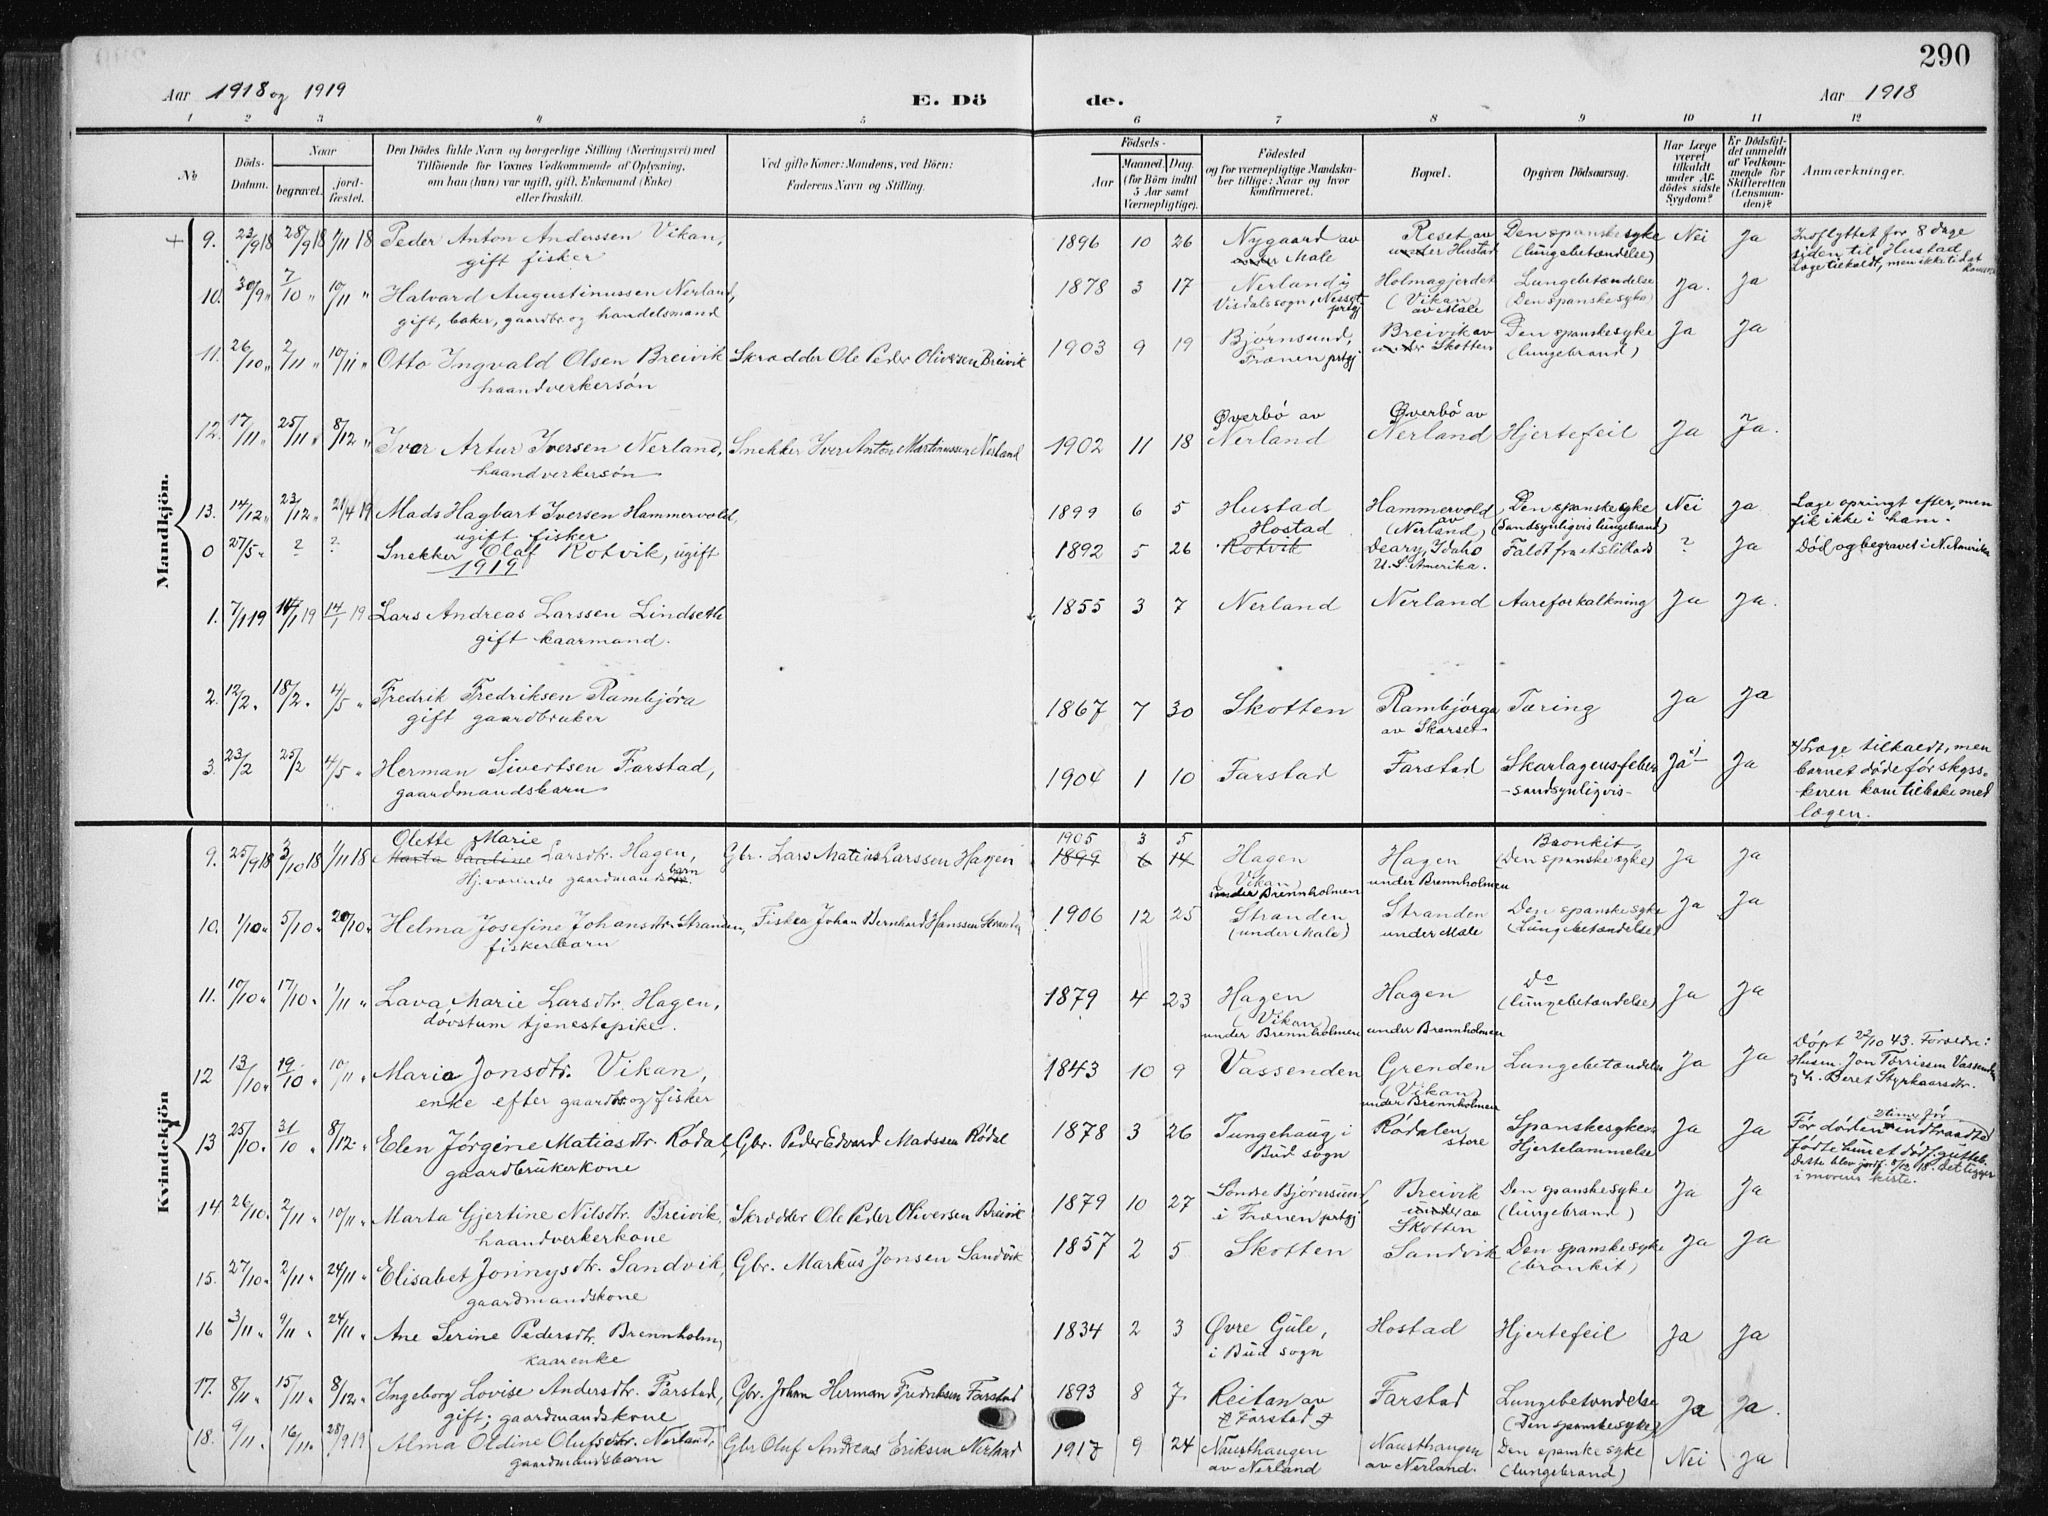 290
Aar 1918 og 1919
E. Dö de.
Aar 1918
1 2 3 4 5 6 7 8 9 10 11 12
No
Döds-Datum.
Naar
begravet.
jord-fæstet.
Den Dödes fulde Navn og borgerlige Stilling (Næringsvei) med
Tilföiende for Voxnes Vedkommende af Oplysning,
om han (hun) var ugift, gift, Enkemand (Enke)
eller fraskilt.
Ved gifte Koner: Mandens, ved Börn:
Faderens Navn og Stilling.
Födsels-
Aar
Maaned. Dag.
(for Börn indtil
5 Aar samt
Værnepligtige).
Födested
og for værnepligtige Mandska-
ber tillige: Naar og hvor
konfirmeret.
Bopæl.
Opgiven Dödsaarsag.
Har Læge
været
tilkaldt
under Af-
dödes sidste
Sygdom?
Er Dödsfal-
det anmeldt
af Vedkom-
mende for
Skifteretten
(Lensman-
den)?
Anmærkninger.
Mandkjön.
9. 23/9 18 28/9 18 1/11 18 Peder Anton Anderssen Vikan, 1896 10 26 Nygaard av Reset av Den spanske syke Nei Ja Indflyttet for 8 dage
gift fisker under Male under Hustad (lungebetændelse) siden til Hustad
Læge tilkaldt, men ikke tidat
10. 30/9 " 7/10 " 10/11 " Halvard Augustinussen Nerland, 1878 3 17 Nerland i Holmagjerdet Lungebetændelse Ja. Ja
gift, baker, gaardbr. og handelsmand Visdalsogn, Nessgt. prtgj (Vikan) av Male (Den spanske syke)
11. 26/10 " 2/11 " 10/11 " Otto Ingvald Olsen Breivik Skrædder Ole Peder Oliversen Breivik 1903 9 19 Bjørnsund, Breivik av Den spanske syke Ja Ja
haandverkersøn Frænen prtgj under Skotten (lungebrand)
12. 17/11 " 25/11 " 8/12 " Ivar Artur Iversen Nerland, Snekker Iver Anton Martinussen Nerland 1902 11 18 Øverbø av Nerland Øverbø av Nerland Hjertefeil Ja Ja.
haandverkersøn
13. 14/12 " 23/12 " 21/4 19 Mads Hagbart Iversen Hammervold, 1899 6 5 Hustad Hammervold Den spanske syke Nei Ja Læge opringt efter, men
ugift fisker Hostad av (Nerland) (Sandsynligvis lungebrand) fik ikke i ham.
0 27/5 " ? ? Snekker Olaf Rotvik, ugift 1892 5 26 Rotvik Deary, Idaho Faldt fra et stillads ? Ja Død og begravet i N. Amerika
1919 U. S. Amerika.
1. 7/1 19 14/1 19 14/1 19 Lars Andreas Larssen Lindseth 1855 3 7 Nerland Nerland Aareforkalkning Ja Ja.
gift kaarmand.
2. 12/2 " 18/2 " 4/5 " Fredrik Fredriksen Rambjøra 1867 7 30 Skotten Rambjørga Tæring Ja Ja
gift gaardbruker av Skarset
3. 23/2 25/2 4/5 " Herman Sivertsen Farstad, 1904 1 10 Farstad Farstad Skarlagensfeber Ja x) Ja x) Læge tilkaldt, men
gaardmandsbarn -sandsynligvis- barnet døde før skyss-
karen kom tilbake med
lægen.
Kvindekjön
9. 25/9 18 3/10 18 1/11 18 Olette Marie 1905 3 5 Bronkit
Marta Pauline Larsdtr. Hagen, Gbr. Lars Matias Larssen Hagen 1899 6 14 Hagen Hagen (Den spanske syke) Ja Ja
Hj. værende gaardmandsbarn (Vikan) under Brennholmen under Brennholmen
10. 1/10 " 5/10 " 20/10 " Helma Josefine Johansdtr. Stranden, Fisker Johan Bernhard Hanssen Stranden 1906 12 25 Stranden Stranden Den spanske syke Ja Ja
fiskerbarn (under Male) under Male (Lungebetændelse)
11. 10/10 " 17/10 " 1/11 " Lava Marie Larsdtr. Hagen, 1879 4 23 Hagen Hagen Do Ja Ja
døvstum tjenestepike. (Vikan) under Brennholmen under Brennholmen (lungebetændelse)
12 13/10 " 19/10 " 10/11 " Maria Jonsdtr. Vikan, 1843 10 9 Vassenden Grenden Lungebetændelse Ja Ja Døpt 22/10 43. Foreldr:
enke efter gaardbr. og fisker (Vikan) under Brennholmen Husm. Jon Tærrisen Vassenden
og h. Beret Styrkaarsdtr.
13 25/10 " 31/10 " 8/12 " Elen Jørgine Matiasdtr. Rødal, Gbr. Peder Edvard Madssen Rødal 1878 3 26 Tungehaug i Rødalen Spanskesyken Ja Ja 2 timer før
gaardbrukerkone Bud sogn store Hjertelammelse Før døden indtraadte
fødte hun et dødf. gutteb.
Dette blev jordf. 8/12 18. Det ligger
i morens kiste.
14 26/10 " 2/11 " 10/11 " Marta Gjertine Nilsdtr. Breivik, Skrædder Ole Peder Oliversen Breivik 1879 10 27 Søndre Bjørnsund, Breivik Den spanske syke Ja Ja
haandverkerkone i Frænen prtgj under av Skotten (lungebrand)
15. 27/10 " 2/11 " 24/11 " Elisabet Jonnysdtr. Sandvik, Gbr. Markus Jonsen Sandvik 1857 2 5 Skotten Sandvik Den spanske syke Ja Ja
gaardmandskone (bronkit)
16 3/11 " 9/11 " 24/11 " Ane Serine Pedersdtr. Brennholm, 1834 2 3 Øvre Gule, Hostad Hjertefeil Ja Ja
kaarenke i Bud sogn
17. 8/11 " 15/11 " 8/12 " Ingeborg Lovise Andersdtr. Farstad, Gbr. Johan Herman Fredriksen Farstad 1893 8 7. Reitan av Farstad Lungebetændelse Ja Ja.
gift; gaardmandskone Farstad (Den spanske syke)
18. 9/11 " 16/11 " 28/9 19 Alma Oldine Olufsdtr. Nerland, Gbr Oluf Andreas Eriksen Nerland 1917 9 24 Nausthaugen Nausthaugen Den spanske syke Nei Ja
gaardmandsbarn av Nerland av Nerland. (lungebrand)